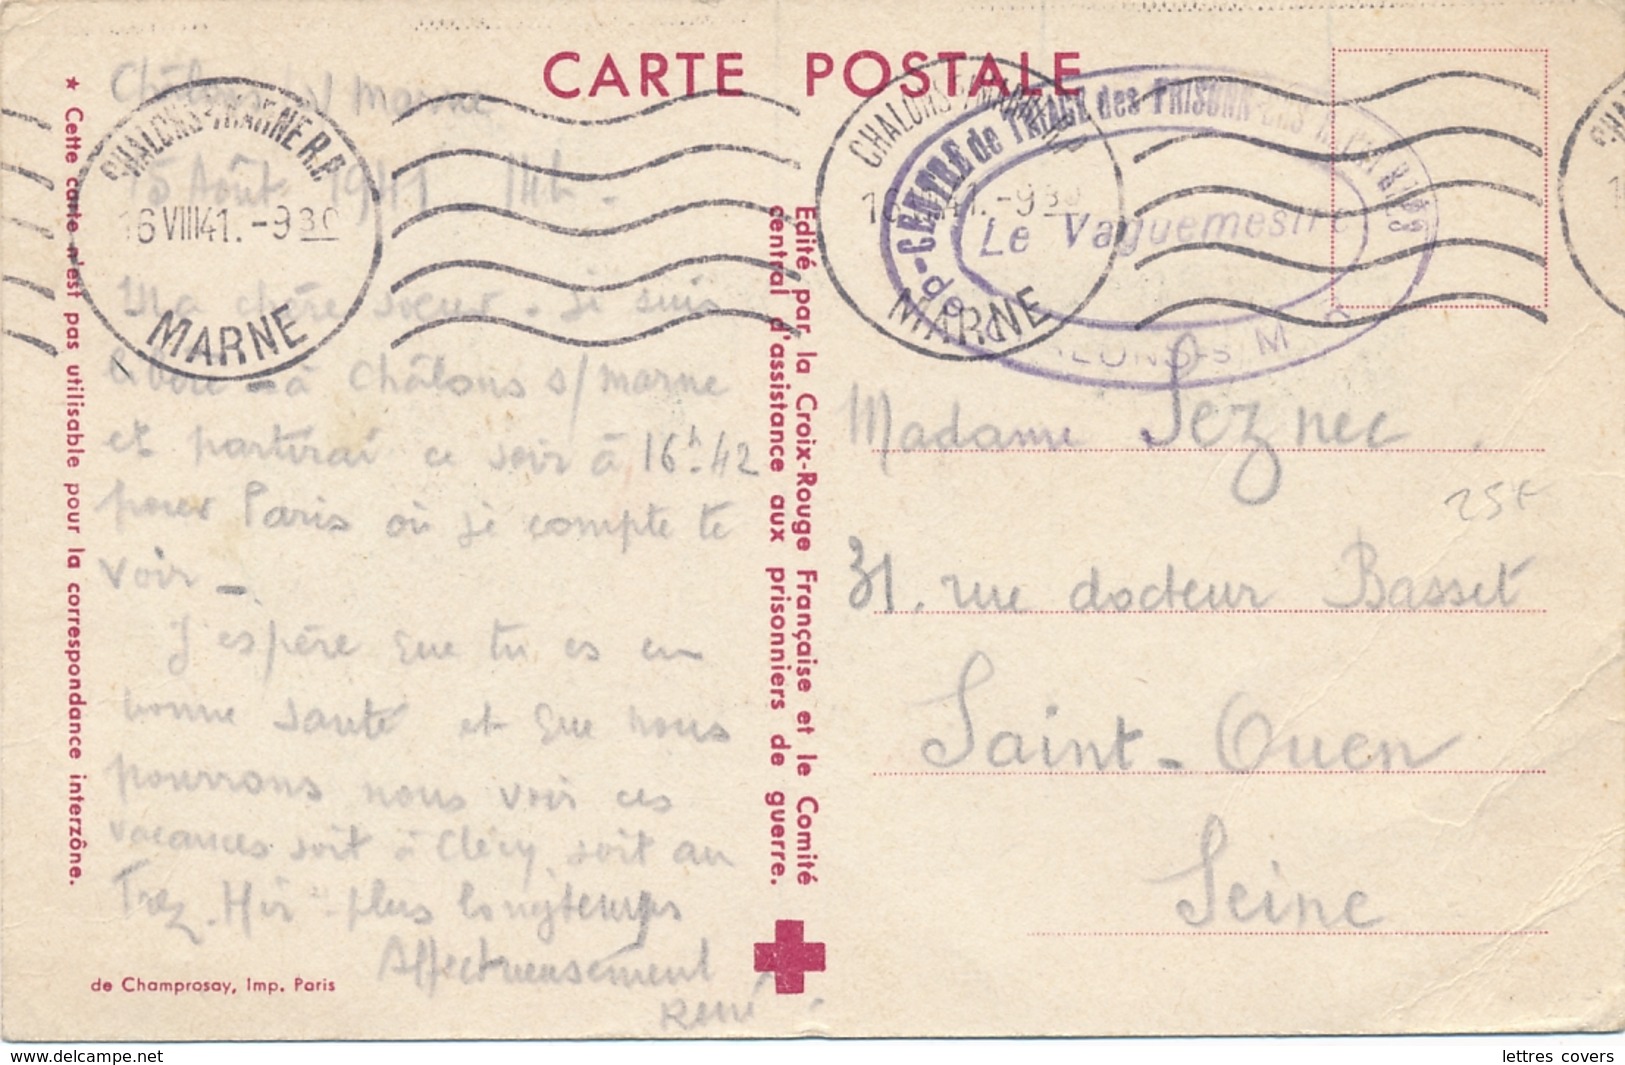 CARTE POSTALE
★ Cette carte n'est pas utilisable pour la correspondance interzône.
Châlons s/ Marne
15 Août 1941 14h.
Ma chère soeur. Je suis
libéré - à Châlons s/marne
et partirai ce soir à 16h.42
pour Paris où je compte te
voir -
J'espère que tu es en
bonne santé et que nous
pourrons nous voir ces
vacances soit à Cléry, soit au
Trez-Hir - plus longtemps
Affectueusement
René
de Champrosay, Imp. Paris
Edité par la Croix-Rouge Française et le Comité
central d'assistance aux prisonniers de guerre.
CHALONS-S-MARNE R.P.
16 VIII 41. - 9 30
MARNE
CHALONS-S-MARNE R.P.
16 VIII 41. - 9 30
MARNE
CENTRE de TRIAGE des PRISONNIERS RAPATRIÉS
Le Vaguemestre
de CHALONS-s-M
Madame Seznec
25F
31. rue docteur Basset
Saint-Ouen
Seine
lettres covers